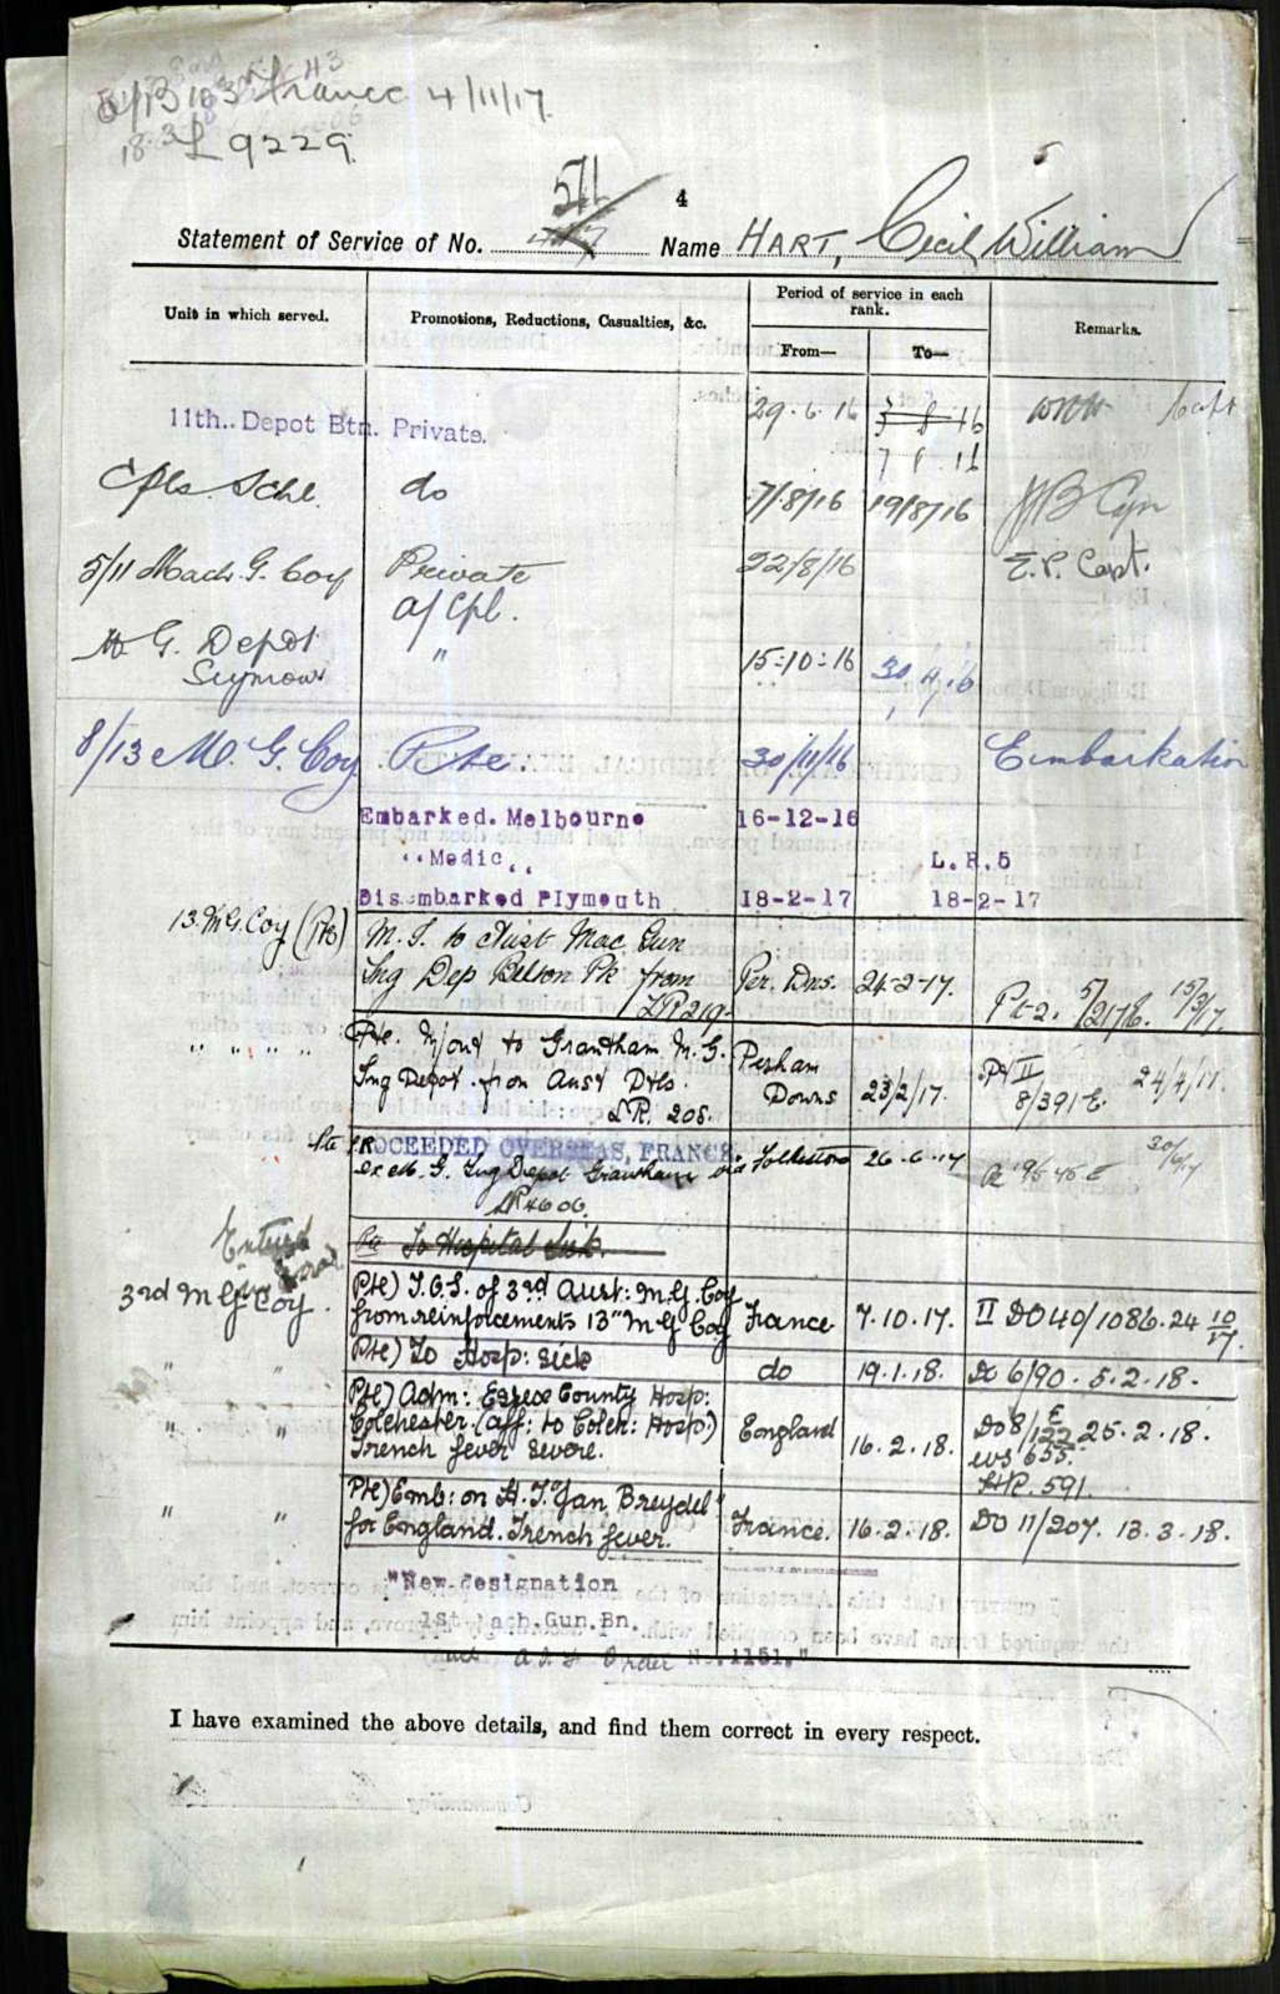 France 4/11/17
L 9229
511
4
Statement of Service of No. Name HART, Cecil William
Unit in which served.
Promotions, Reductions, Casualties, &c.
Period of service in each rank.
From—
To—
Remarks.
11th.. Depot Btn. Private. 29.6.16 3 8 16 Capt
7 8 16
Cpls. Schl. do 7/8/16 19/8/16
5/11 Mach. G. Coy Private 22/8/16 E.P. Capt.
a/Cpl.
M G. Depot " 15:10:16
Seymour
8/13 M. G. Coy Pte. 30/11/16 Embarkation
Embarked. Melbourne 16-12-16
"Medic" L.R.5
Disembarked Plymouth 18-2-17 18-2-17
13. M.G. Coy (Pte) M.I. to Aust Mac Gun
Tng Dep Belton Pk from Per. Dns. 24-2-17. Pt-2. 5/2176. 15/3/17.
LR 219
" " " " Pte. M/out to Grantham M.G. Perham
Tng Depot. from Aust Dtls. Downs 23/2/17. Pt II 8/391 E. 24/4/17.
LR. 208.
Pte PROCEEDED OVERSEAS, FRANCE
ex M. G. Tng Depot Grantham via Folkestone 26.6.17 30/6/17
LR 4606
Pte To Hospital Sick.
3rd M G Coy. Pte) T.O.S. of 3rd Aust: M.G. Coy
from reinforcements 13" M G Coy France 7.10.17. II DO 40/1086. 24 10/17.
" " Pte) To Hosp: sick do 19.1.18. Do 6/90. 5.2.18.
Pte) Adm: Essex County Hosp:
" " Colchester. (aff: to Colch: Hosp:) England 16.2.18. DO 8/122 E 25.2.18.
Trench fever severe. WS 655.
HR. 591.
Pte) Emb: on H.T. "Jan Breydel"
" " for England. Trench fever. France. 16.2.18. DO 11/207. 13.3.18.
"New designation
1st Mach. Gun. Bn.
A.I.F. Order No. 1151."
I have examined the above details, and find them correct in every respect.